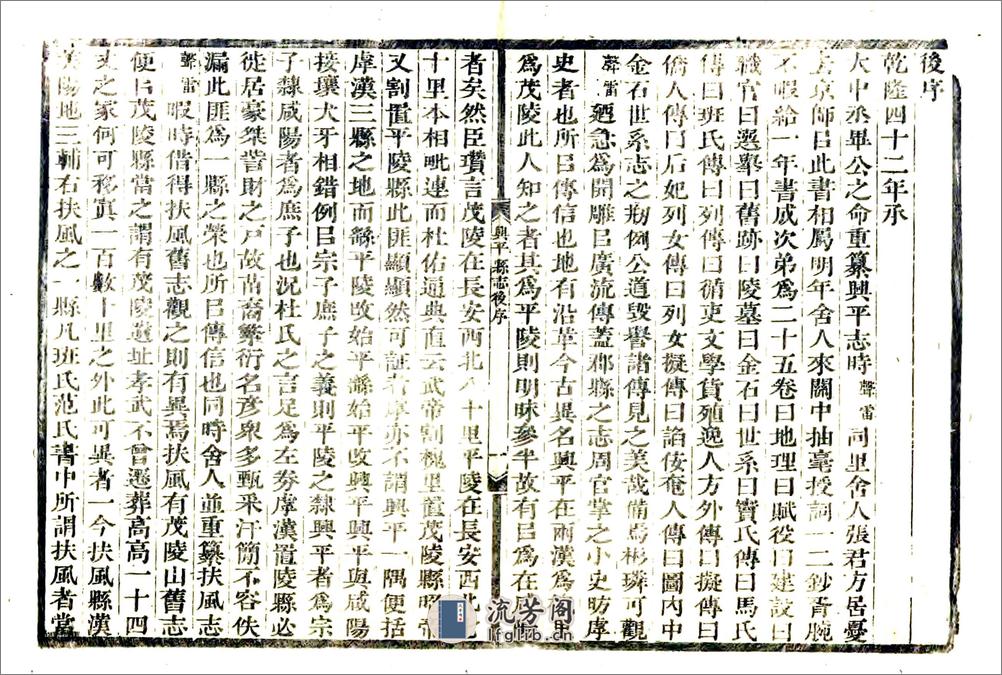 後序
乾隆四十二年承
大中丞畢公之命重纂興平志時聲雷同里舍人張君方居憂
京師㠯此書相屬明年舍人來關中抽毫授詞一二鈔胥腕
不暇給一年書成次弟為二十五卷曰地理曰賦役曰建設曰
職官曰選舉曰舊跡曰陵墓曰金石曰世系曰竇氏傳曰馬氏
傳曰班氏傳曰列傳曰循吏文學貨殖逸人方外傳曰擬傳曰
僑人傳曰后妃列女傳曰列女擬傳曰諂佞奄人傳曰圖內中
金石世系志之剏例公道毀譽諸傳見之美哉備焉彬璘可觀
聲雷廼急為開雕㠯廣流傳蓋郡縣之志周官掌之小史昉虖
史者也所㠯傳信也地有沿革今古異名興平在兩漢為
為茂陵此人知之者其為平陵則明昧參半故有㠯為在
興平縣志後序
一
者矣然臣瓚言茂陵在長安西北八十里平陵在長安西北七
十里本相毗連而杜佑通典直云武帝割槐里置茂陵縣昭帝
又割置平陵縣此匪顯顯然可証者虖亦不謂興平一隅便括
虖漢三縣之地而繇平陵攺始平繇始平攺興平興平與咸陽
接壤犬牙相錯例㠯宗子庶子之義則平陵之隸興平者為宗
子隸咸陽者為庶子也況杜氏之言足為左劵虖漢置陵縣必
徙居豪桀訾財之戸故苗裔繁衍名彥衆多甄采汗簡不容佚
漏此匪為一縣之榮也所㠯傳信也同時舍人並重纂扶風志
聲雷暇時借得扶風舊志觀之則有異焉扶風有茂陵山舊志
便㠯茂陵縣當之謂有茂陵遺址孝武不曾遷葬高高一十四
丈之冢何可移寘一百數十里之外此可異者一今扶風縣漢
美陽地三輔右扶風之一縣凡班氏范氏書中所謂扶風者當
流芳阁
lfglib.cn